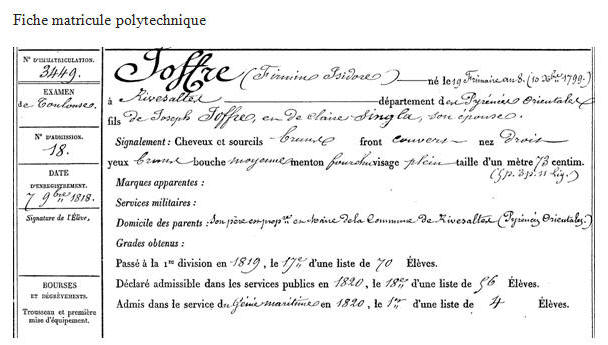 Fiche matricule polytechnique
N° D'IMMATRICULATION.
3449.
EXAMEN
de Toulouse.
N° D'ADMISSION.
18.
DATE
D'ENREGISTREMENT.
7 9bre 1818.
Signature de l'Élève,
BOURSES
ET DÉGRÈVEMENTS.
Trousseau et première
mise d'équipement.
Joffre (Firmin Isidore) né le 19 Frimaire an 8. (10 Xbre 1799.)
à Rivesaltes département des Pyrénées Orientales
fils de Joseph Joffre, et de claire Singla, son épouse.
Signalement : Cheveux et sourcils bruns front couvert nez Droit
yeux bruns bouche moyenne menton fourchu visage plein taille d'un mètre 73 centim.
(5p. 3p. 11 lig.)
Marques apparentes :
Services militaires :
Domicile des parents : Son père est prop.re et maire de la Commune de Rivesaltes (Pyrénées Orientales.)
Grades obtenus :
Passé à la 1re division en 1819, le 17e d'une liste de 70 Élèves.
Déclaré admissible dans les services publics en 1820, le 18e d'une liste de 56 Élèves.
Admis dans le service du Génie maritime en 1820, le 1er d'une liste de 4 Élèves.